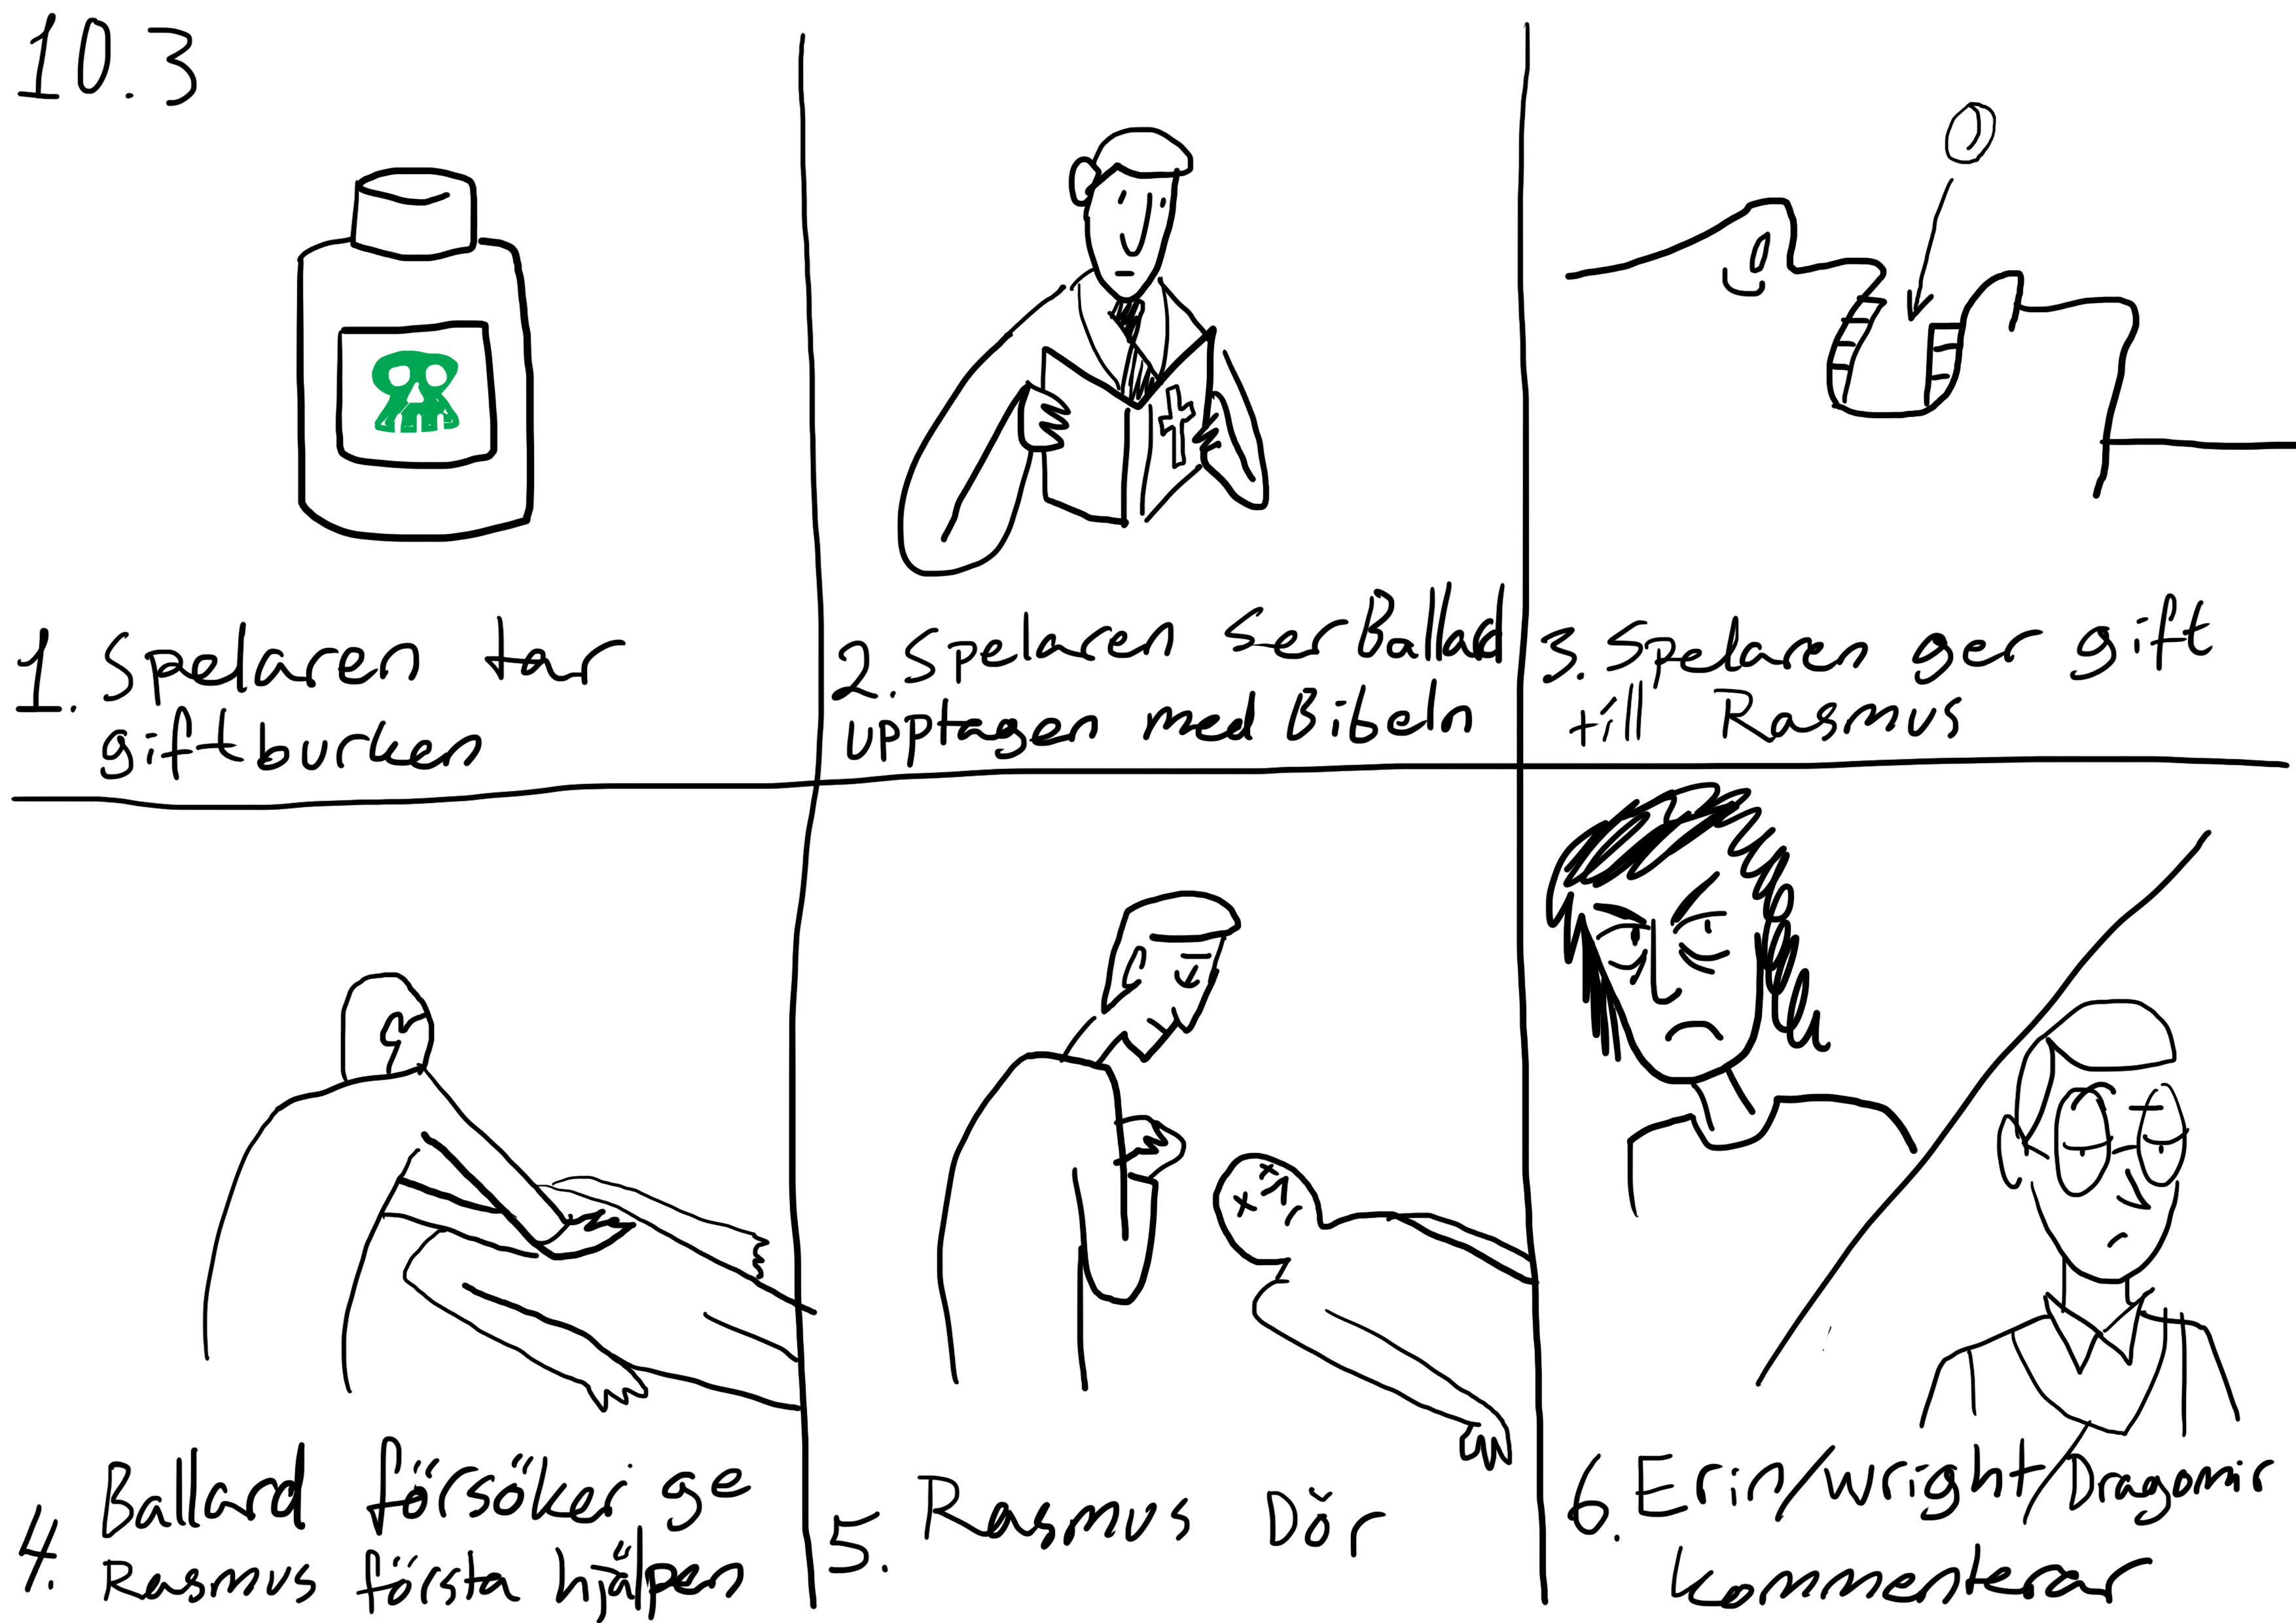 10.3
1. Spelaren tar
giftburken
2. Spelaren ser Ballad
upptagen med Bibeln
3. Spelaren ger gift
till Rasmus
4. Ballard försöker ge
Rasmus första hjälpen
5. Rasmus Dör
6. Erin/Wright/Dragomir
kommenterar